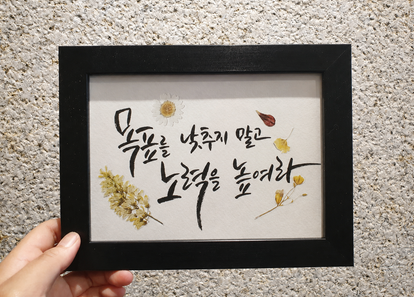 목표를 낮추지 말고
노력을 높여라